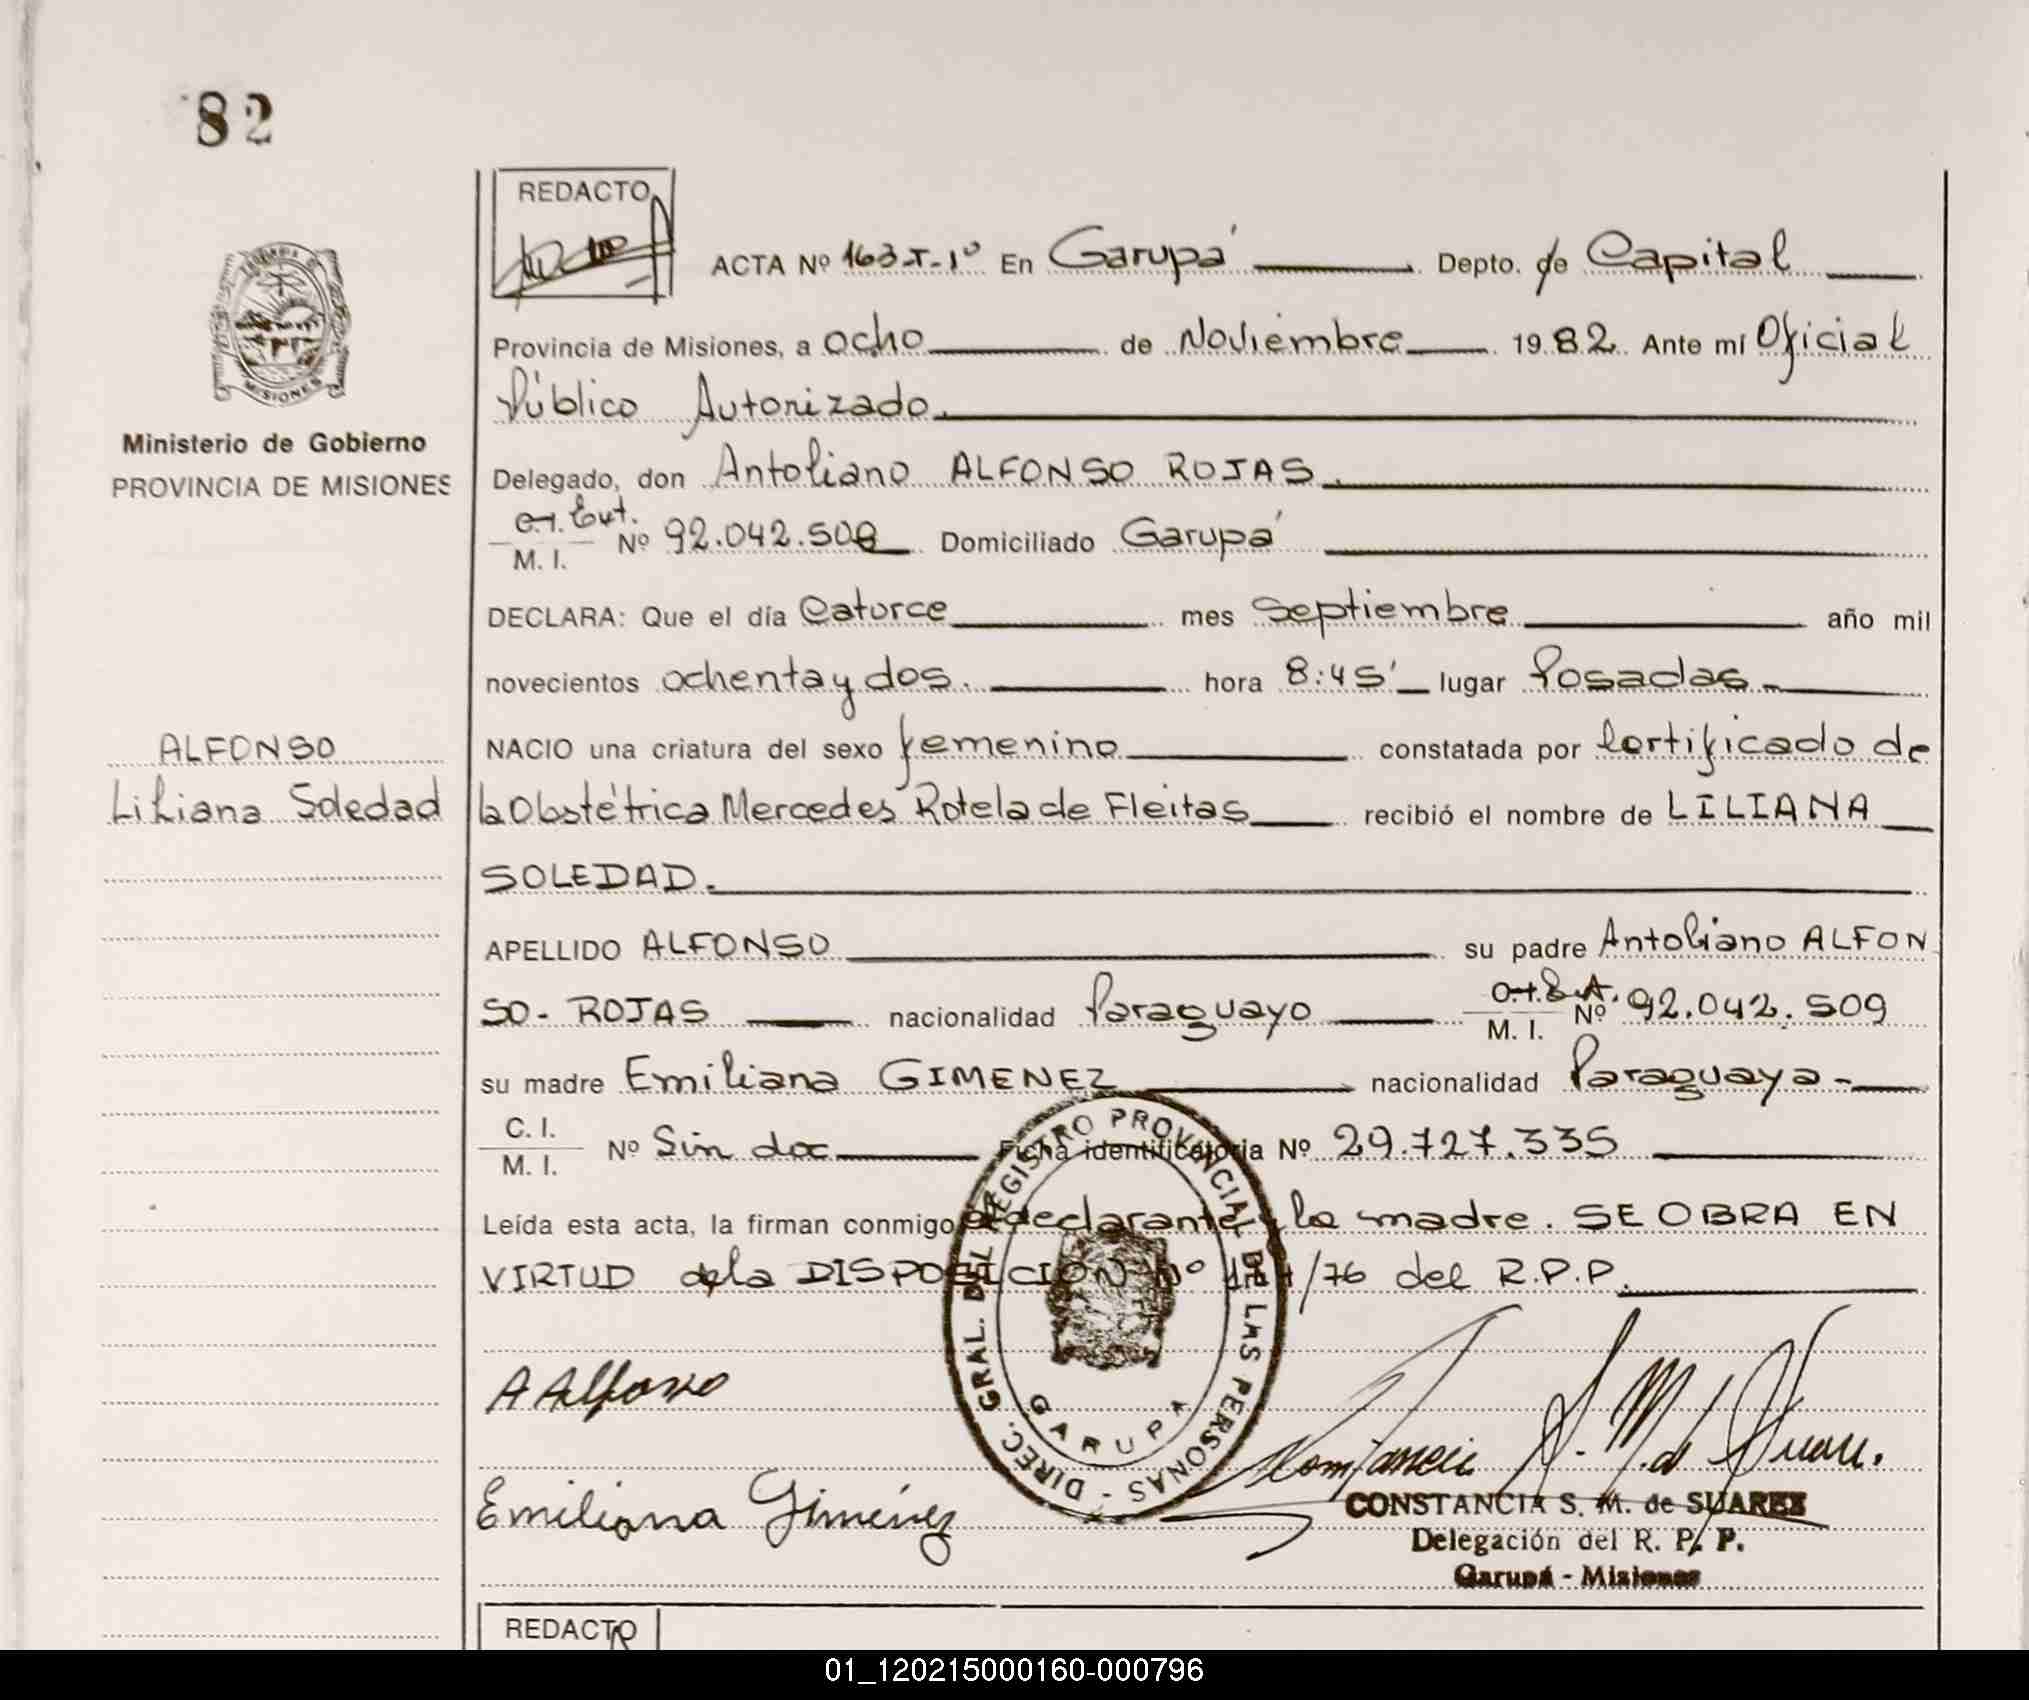 82
REDACTO
ACTA Nº 163-T-1º En Garupá Depto. de Capital
Provincia de Misiones, a ocho de Noviembre 1982 Ante mí Oficial
Público Autorizado.
Delegado, don Antoliano ALFONSO ROJAS.
C.I. Ext.
M. I. Nº 92.042.509 Domiciliado Garupá
DECLARA: Que el día Catorce mes Septiembre año mil
novecientos ochenta y dos. hora 8:45' lugar Posadas.
NACIO una criatura del sexo femenino constatada por Certificado de
la Obstétrica Mercedes Rotela de Fleitas recibió el nombre de LILIANA
SOLEDAD.
APELLIDO ALFONSO su padre Antoliano ALFON
SO- ROJAS nacionalidad Paraguayo M. I. Nº 92.042.509
su madre Emiliana GIMENEZ nacionalidad Paraguaya-
C. I.
M. I. Nº Sin doc Ficha identificatoria Nº 29.727.335
Leída esta acta, la firman conmigo el declarante y la madre. SE OBRA EN
VIRTUD de la DISPOSICION Nº /76 del R.P.P.
A Alfonso
Emiliana Giménez
Ministerio de Gobierno
PROVINCIA DE MISIONES
ALFONSO
Liliana Soledad
MISIONES
DIREC. GRAL. DEL REGISTRO PROVINCIAL DE LAS PERSONAS -
GARUPA
Constancia S. M. d Suarez.
CONSTANCIA S. M. de SUAREZ
Delegación del R. P. P.
Garupá - Misiones
REDACTO
01_120215000160-000796